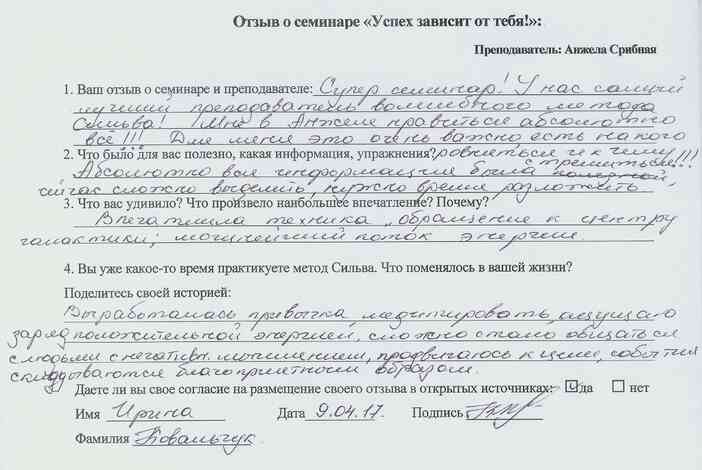 Отзыв о семинаре «Успех зависит от тебя!»:
Преподаватель: Анжела Срибная
1. Ваш отзыв о семинаре и преподавателе: Супер семинар! У нас самый
лучший преподаватель волшебного метода
Сильва! Мне в Анжеле нравиться абсолютно
всё!!! Для меня это очень важно есть на кого
2. Что было для вас полезно, какая информация, упражнения? ровняться и к чему
стремиться!!!
Абсолютно вся информация была полезной,
сейчас сложно выделить, нужно время разложить
3. Что вас удивило? Что произвело наибольшее впечатление? Почему?
Впечатлила техника „обращение к центру
галактики, мощнейший поток энергии.
4. Вы уже какое-то время практикуете метод Сильва. Что поменялось в вашей жизни?
Поделитесь своей историей:
Выработалась привычка медитировать, ощущаю
заряд положительной энергией, сложно стало общаться
с людьми с негативн. мышлением, продвигаюсь к цели, события
складываются благоприятным образом.
Даете ли вы свое согласие на размещение своего отзыва в открытых источниках: да нет
Имя Ирина Дата 9.04.17. Подпись
Фамилия Ковальчук